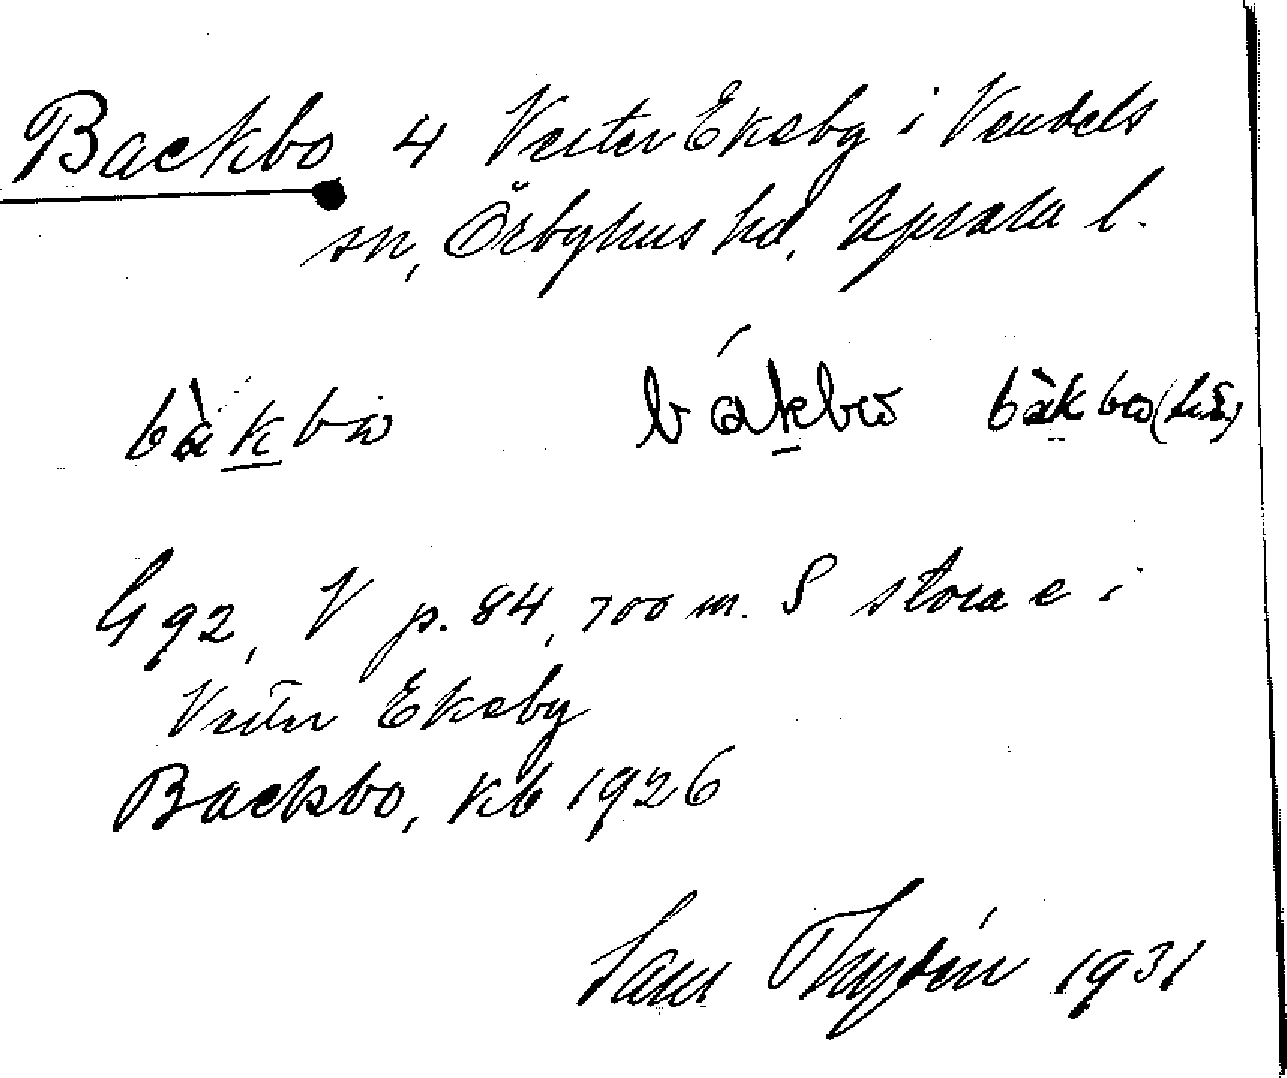 Backbo 4 Vester Ekeby i Vendels
sn, Örbyhus hd, Uppsala l.
bàkbω bákbω bàkbω
G 92, V p. 84, 700 m. S stora e i
Vester Ekeby
Backbo, kb 1926
Sam Thydén 1931